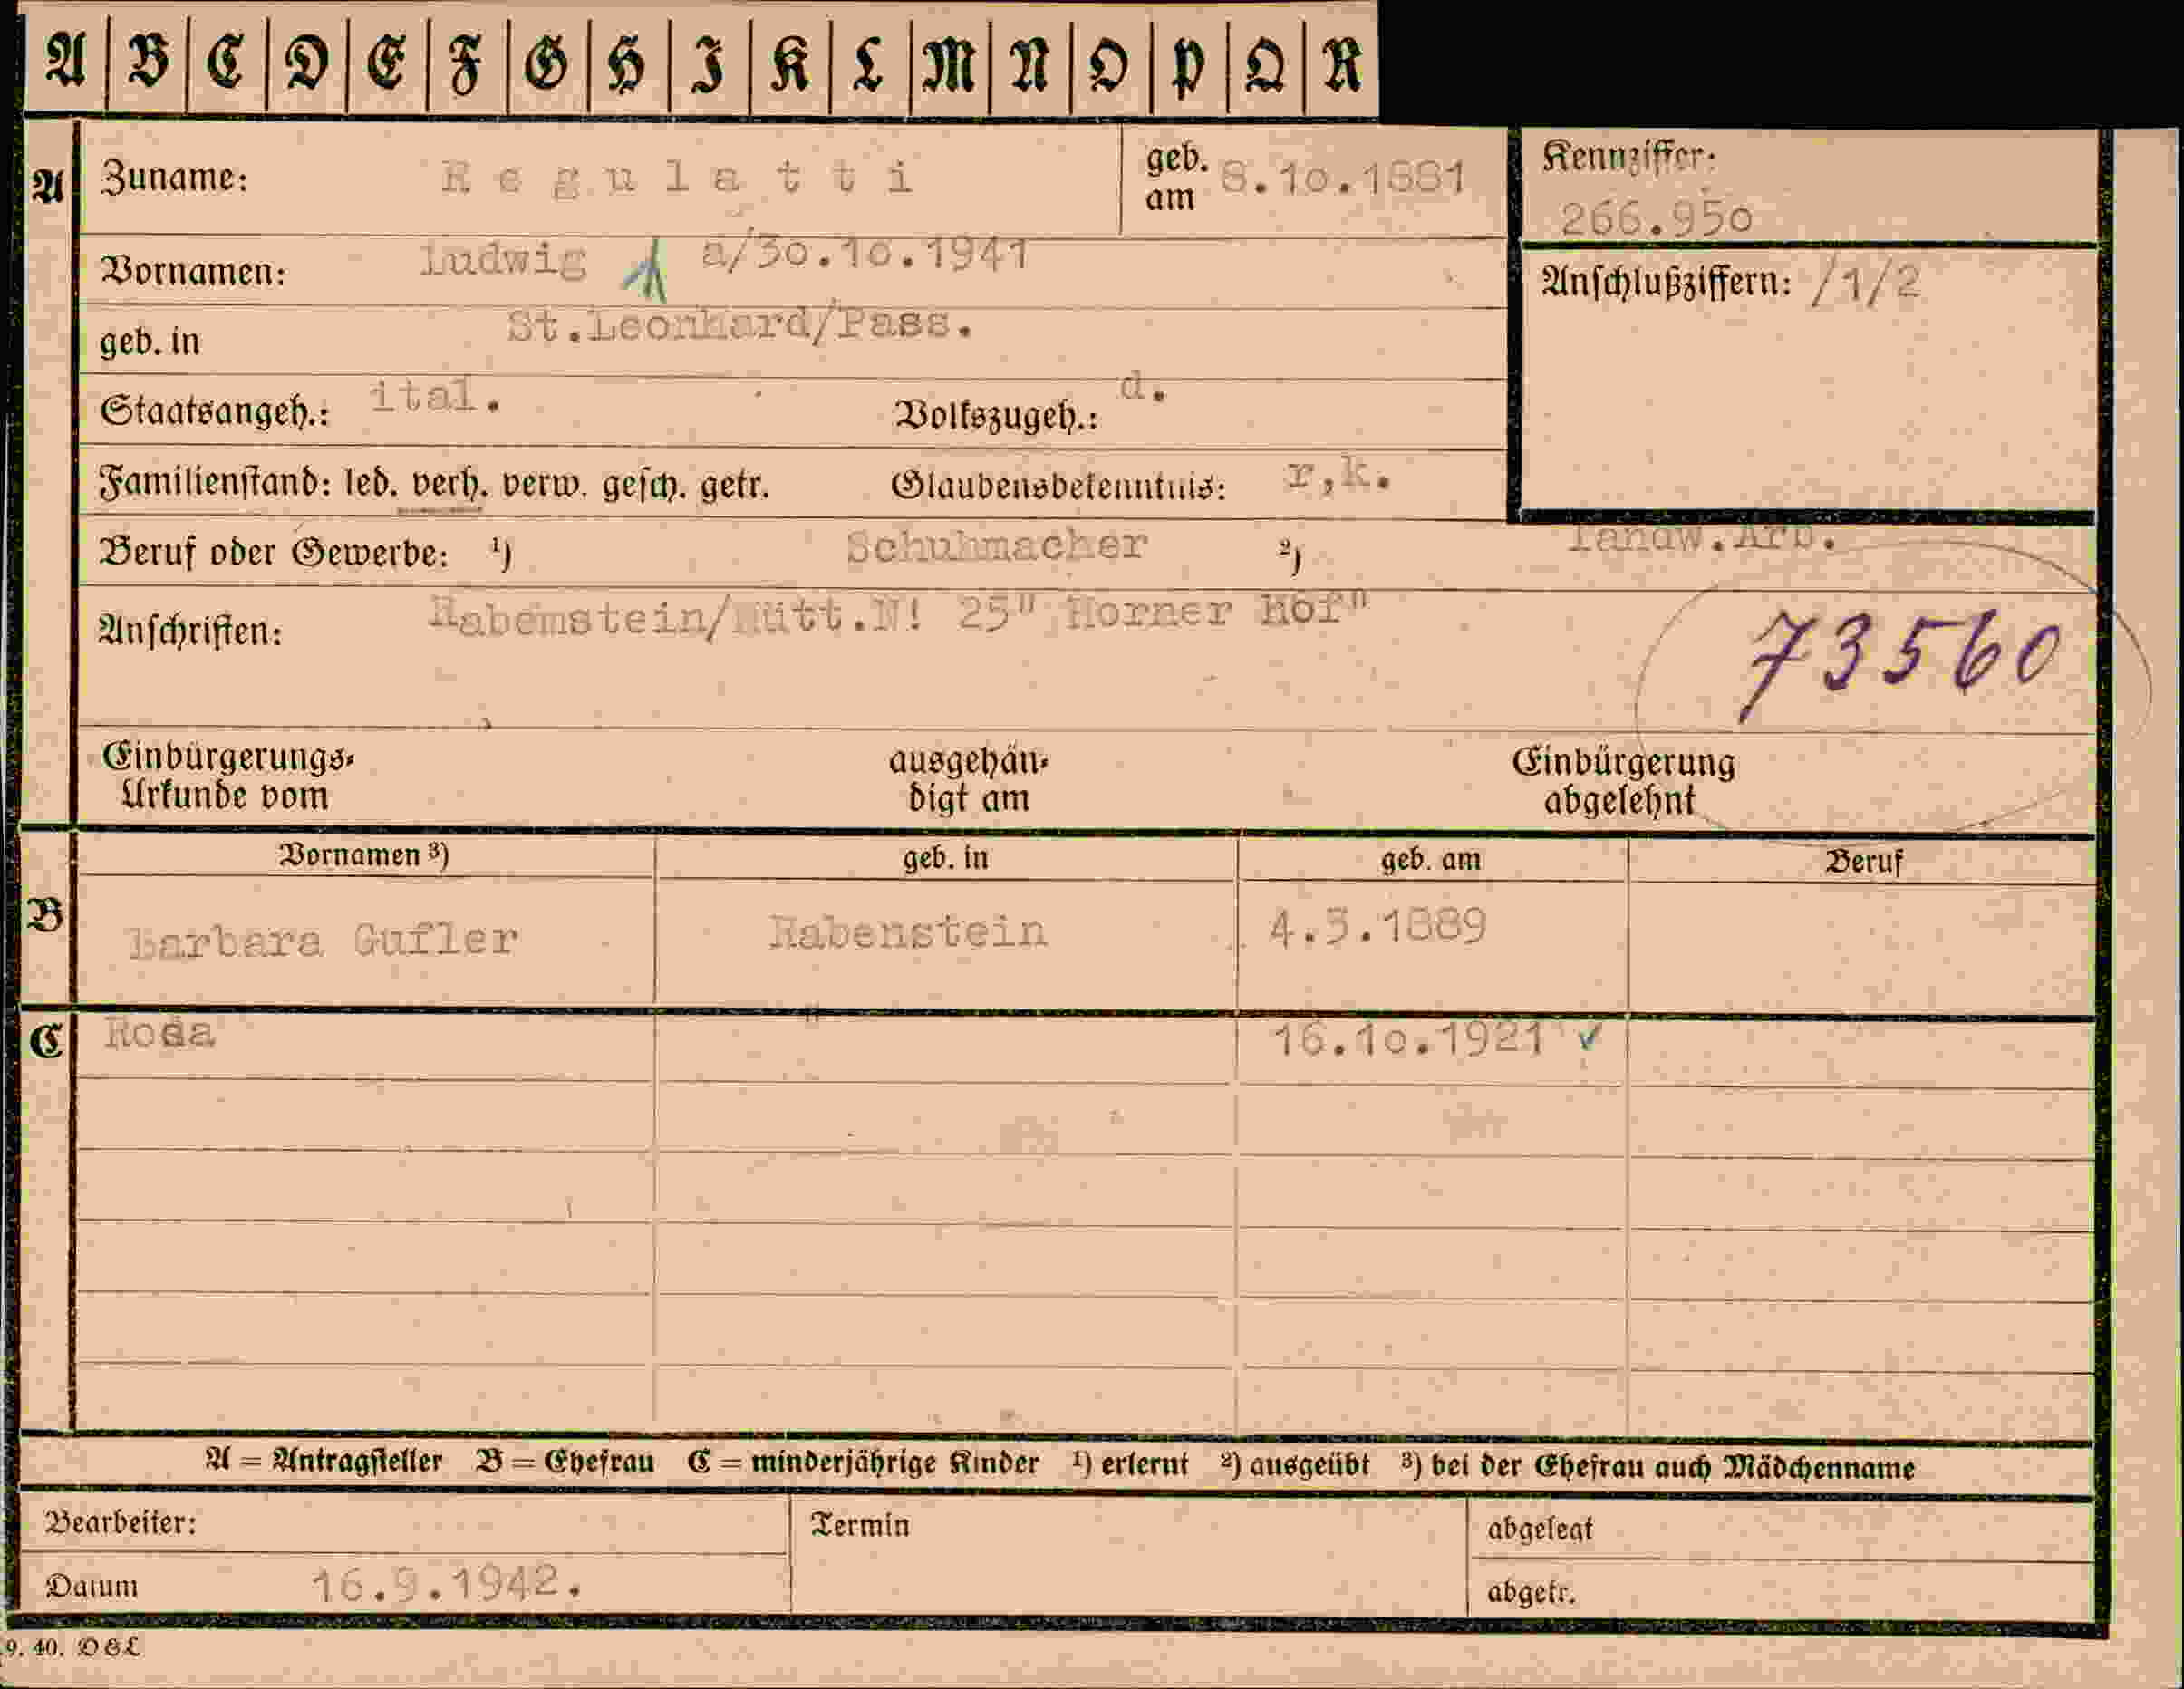 A B C D E F G H I K L M N O P Q R
A Zuname: Regulatti geb. am 8.10.1881 Kennziffer:
266.950
Vornamen: Ludwig a/30.10.1941 Anschlußziffern: /1/2
geb. in St.Leonhard/Pass.
Staatsangeh.: ital. Volkszugeh.: d.
Familienstand: led. verh. verw. gesch. getr. Glaubensbekenntnis: r,k.
Beruf oder Gewerbe: ¹) Schuhmacher ²) landw.Arb.
Anschriften: 25" Horner Hof"
73560
Einbürgerungs-Urkunde vom ausgehändigt am Einbürgerung abgelehnt
Vornamen ³) geb. in geb. am Beruf
B Barbara Gufler Rabenstein 4.3.1889
C Rosa " 16.10.1921 ✓
A = Antragsteller B = Ehefrau C = minderjährige Kinder ¹) erlernt ²) ausgeübt ³) bei der Ehefrau auch Mädchenname
Bearbeiter: Termin abgelegt
Datum 16.9.1942. abgetr.
9. 40. DGL